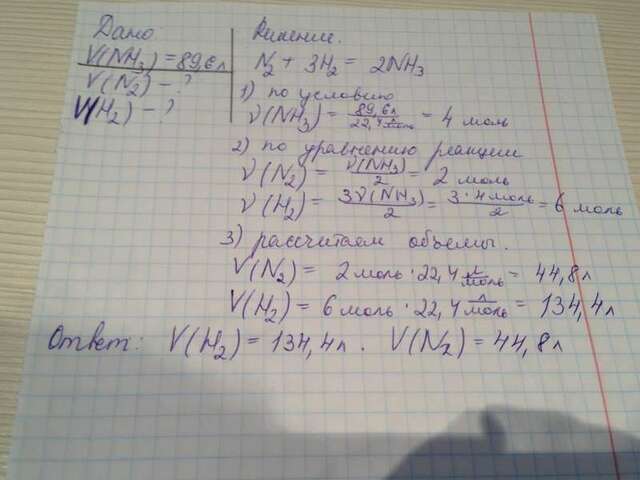 Дано
V(NH₃) = 89,6 л
V(N₂) - ?
V(H₂) - ?
Решение.
N₂ + 3H₂ = 2NH₃
1) по условию
ν(NH₃) = 89,6 л / 22,4 л/моль = 4 мол
2) по уравнению реакции
ν(N₂) = ν(NH₃) / 2 = 2 моль
ν(H₂) = 3ν(NH₃) / 2 = 3·4 моль / 2 = 6 моль
3) рассчитаем объем.
V(N₂) = 2 моль · 22,4 л/моль = 44,8 л
V(H₂) = 6 моль · 22,4 л/моль = 134,4 л
Ответ: V(H₂) = 134,4 л. V(N₂) = 44,8 л